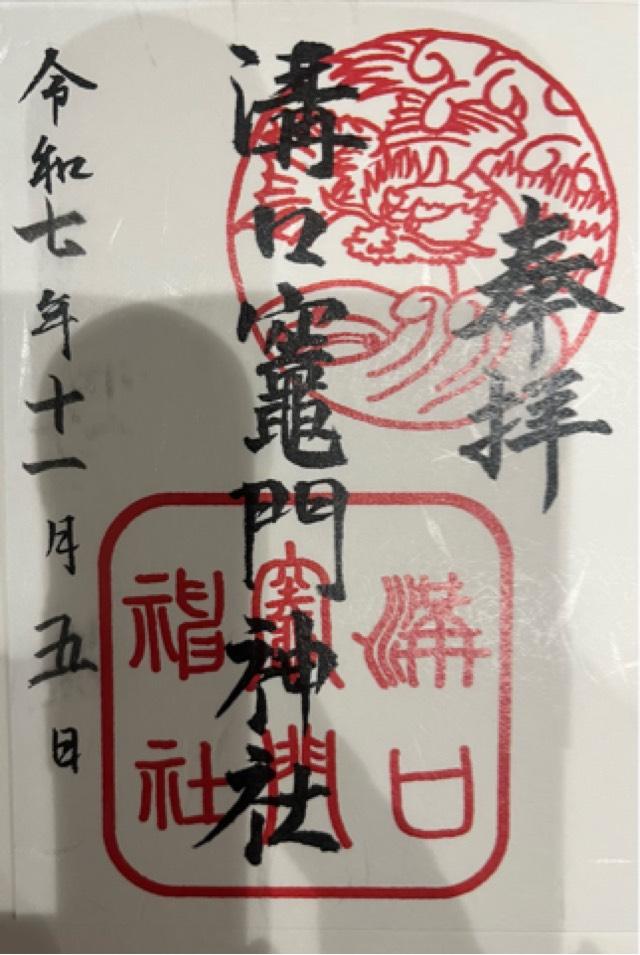 奉拝
溝口竈門神社
令和七年十一月五日
溝口
竈門
神社